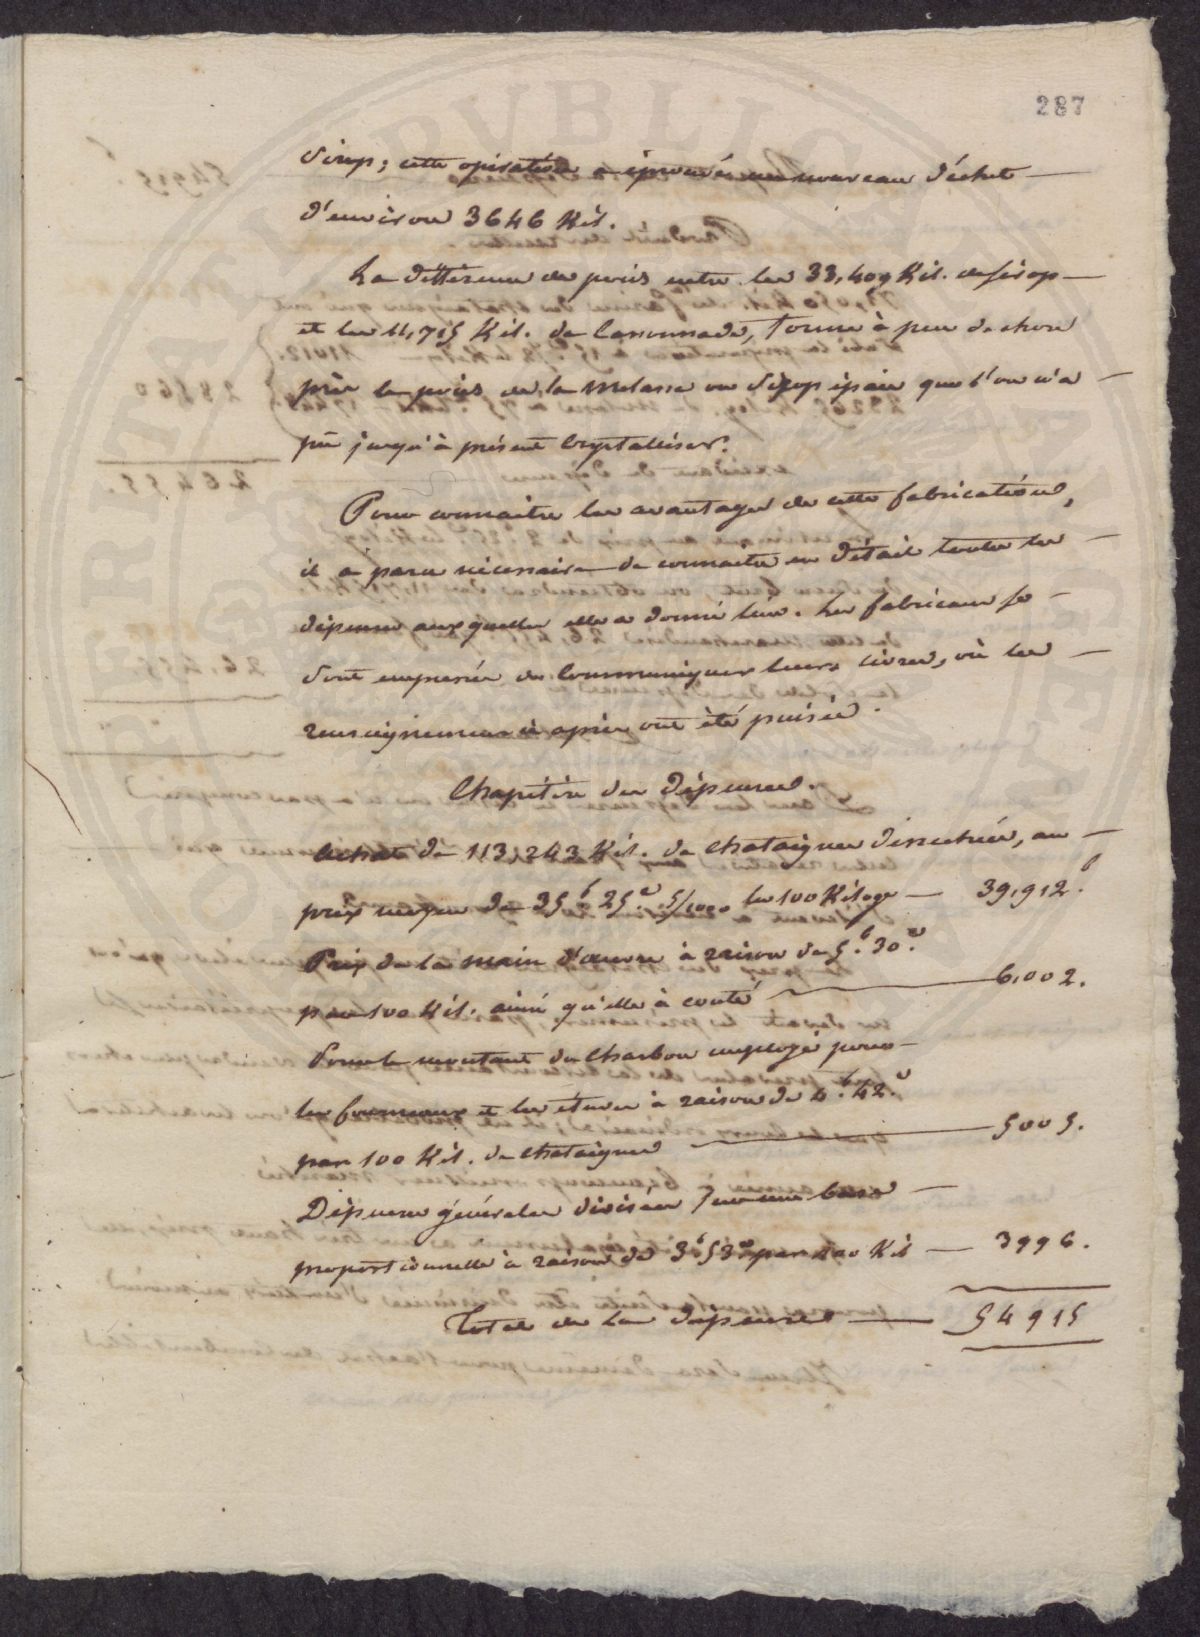 287
Sirop; cette opération a éprouvé un nouveau déchet
d'environ 3646 Kil.
La différence de poids entre les 33,409 Kil. de sirop
et les 11,715 Kil. de Cassonnade, forme à peu de chose
près le poids de la Melasse ou Sirop épais que l'on n'a
pu jusqu'à présent Crystalliser.
Pour connaitre les avantages de cette fabrication,
il a paru nécessaire de connaitre en détail toutes les
dépenses auxquelles elle a donné lieu. Les fabricans se
sont empressés de Communiquer leurs livres, où les
renseignemens ci après ont été puisés.
Chapitre des Dépenses.
Achat de 113,243 Kil. de Chataignes dessechées, au
prix moyen de 35f 25c 5/1000 les 100 Kilogs 39,912f
Prix de la main d'œuvre à raison de 5f 30c
par 100 Kil. ainsi qu'elle à couté 6,002.
Pour le montant du Charbon employé pour
les fourneaux et les étuves à raison de 4f 42c
par 100 Kil. de chataignes 5005.
Dépenses générales divisées sur une base
proportionnelle à raison de 3f 53c par 100 Kil 3996.
Total de la dépense 54915